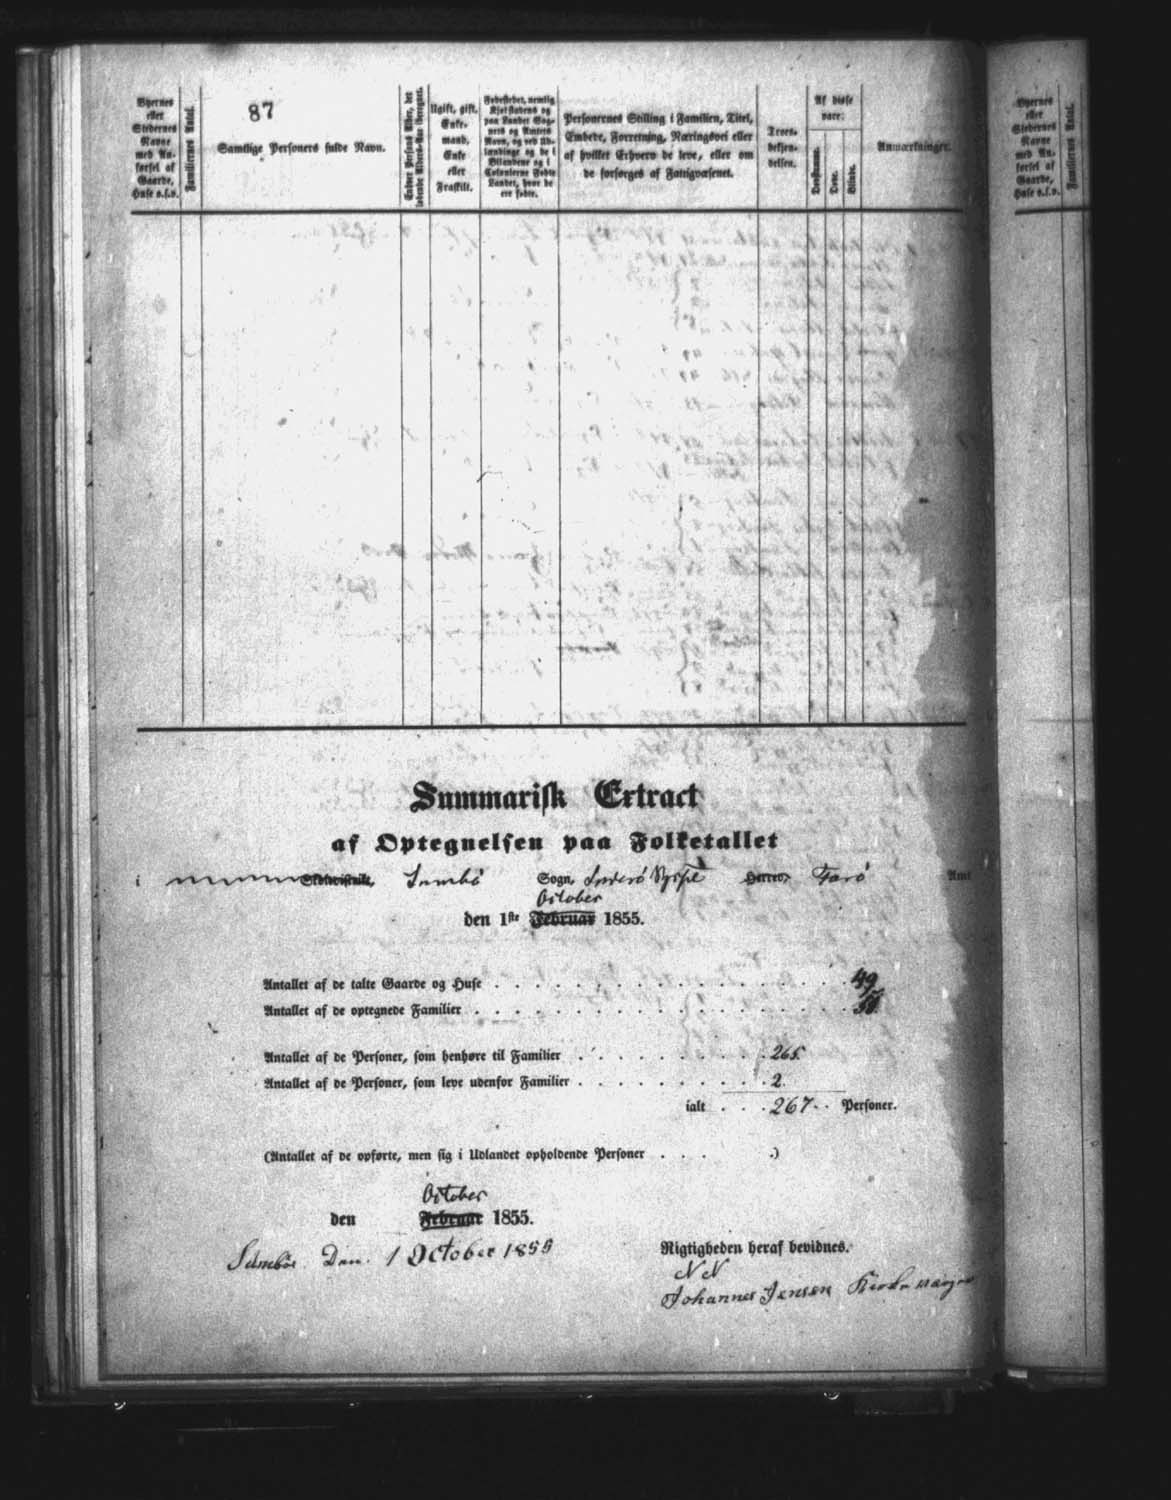 87
Byernes eller Stedernes Navne med Anførsel af Gaarde, Huse o.s.v.
Familiernes Antal.
Samtlige Personers fulde Navn.
Ugift, gift, Enkemand, Enke eller Fraskilt.
Fødestedet, nemlig Kjøbstadens og paa Landet Sognets og Amtets Navn, og ved Udlændinge og de i Bilandene og i Colonierne Fødte Landet, hvor de ere fødte.
Personernes Stilling i Familien, Titel, Embede, Forretning, Næringsvei eller af hvilket Erhverv de leve, eller om de forsørges af Fattigvæsenet.
Troesbekjendelsen.
Af disse vare:
Døvstumme.
Døve.
Blinde.
Anmærkninger.
Byernes eller Stedernes Navne med Anførsel af Gaarde, Huse o.s.v.
Familiernes Antal.
Summarisk Extract
af Optegnelsen paa Folketallet
i Sumbø Sogn, Suderø Syssel Herred, Farø Amt
October
den 1ste Februar 1855.
Antallet af de talte Gaarde og Huse . . . 49
Antallet af de optegnede Familier . . .
Antallet af de Personer, som henhøre til Familier . . . 265.
Antallet af de Personer, som leve udenfor Familier . . . 2.
ialt . . . 267 . . Personer.
(Antallet af de opførte, men sig i Udlandet opholdende Personer . . . .)
October
den Februar 1855.
Sumbøe Den 1 October 1855
Rigtigheden heraf bevidnes.
N N
Johannes Jensen